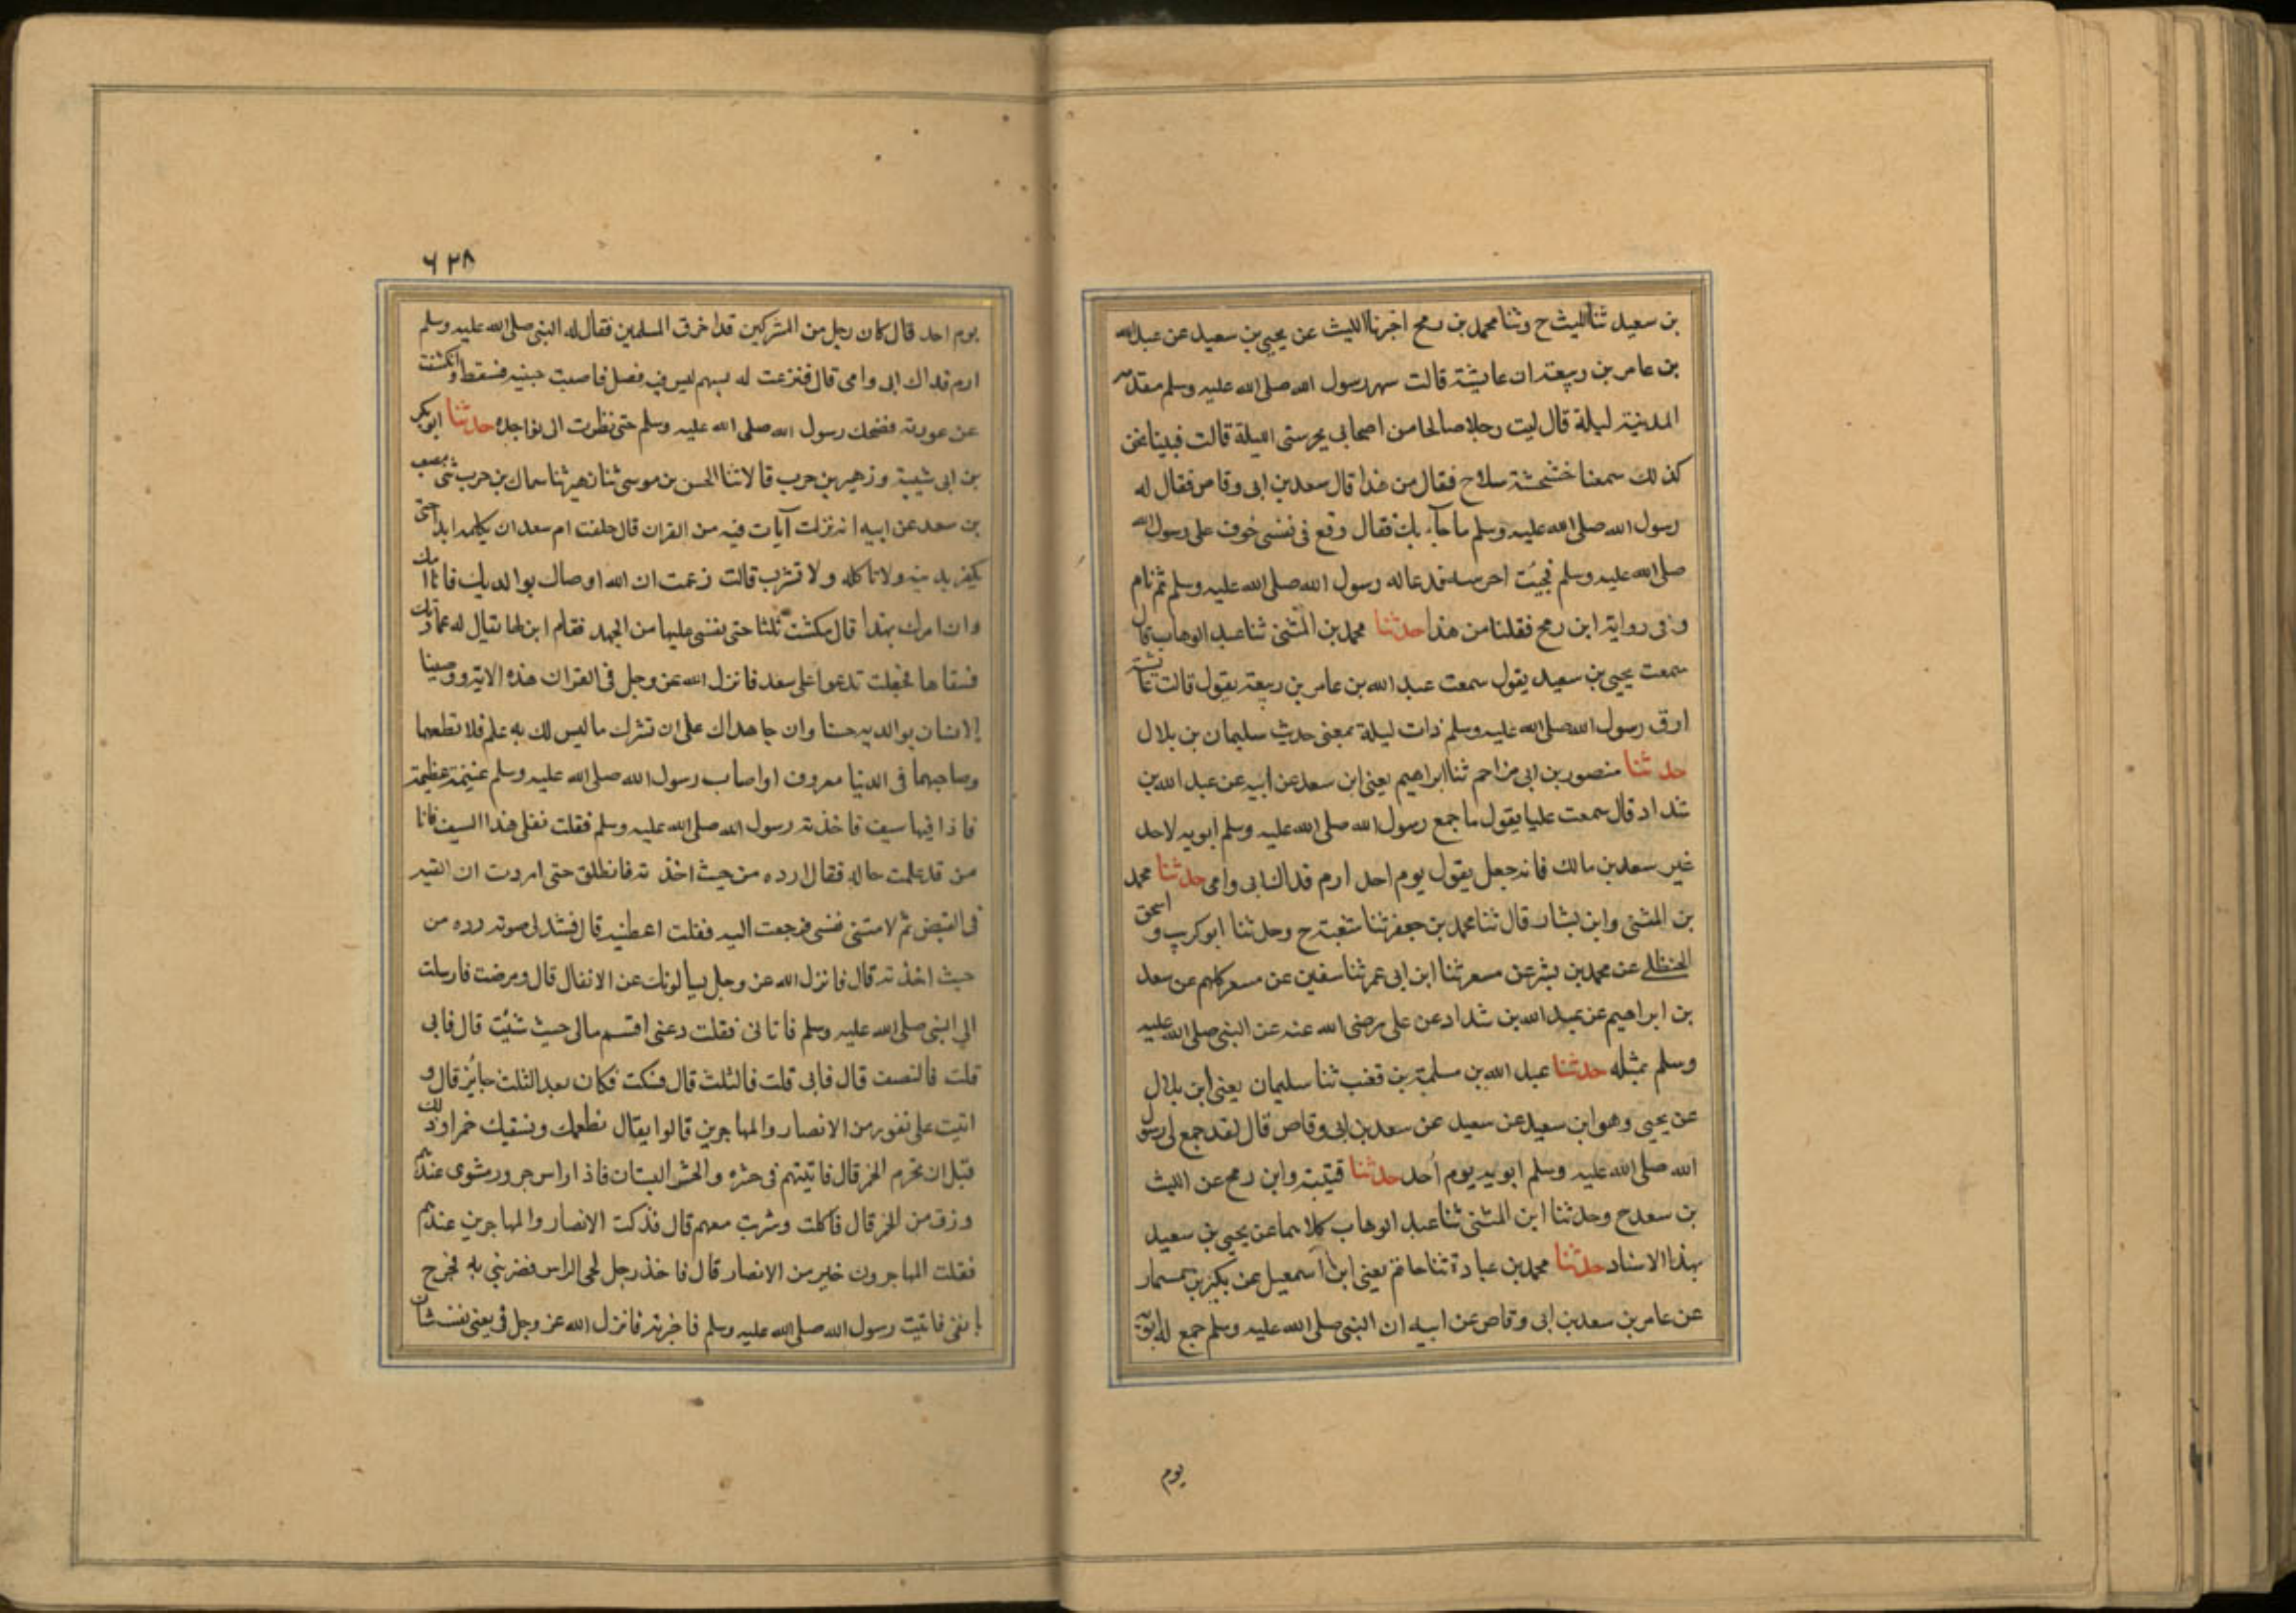 بن سعيد ثنا الليث ح وثنا محمد بن رمح اخبرنا الليث عن يحيى بن سعيد عن عبد الله
بن عامر بن ربيعة ان عايشة قالت سهر رسول الله صلى الله عليه وسلم مقدمه
المدينة ليلة قال ليت رجلا صالحا من اصحابي يحرسنى الليلة قالت فبينا نحن
كذلك سمعنا خشخشة سلاح فقال من هذا قال سعد بن ابى وقاص فقال له
رسول الله صلى الله عليه وسلم ما جآء بك فقال وقع فى نفسى خوف على رسول الله
صلى الله عليه وسلم فجيت احرسه فدعا له رسول الله صلى الله عليه وسلم ثم نام
وفى رواية ابن رمح فقلنا من هذا حدثنا محمد بن المثنى ثنا عبد الوهاب قال
سمعت يحيى بن سعيد يقول سمعت عبد الله بن عامر بن ربيعة يقول قالت عايشة
ارق رسول الله صلى الله عليه وسلم ذات ليلة بمعنى حديث سليمان بن بلال
حدثنا منصور بن ابى مزاحم ثنا ابراهيم يعنى ابن سعد عن ابيه عن عبد الله بن
شداد قال سمعت عليا يقول ما جمع رسول الله صلى الله عليه وسلم ابويه لاحد
غير سعد بن مالك فانه جعل يقول يوم احد ارم فداك ابى وامى حدثنا محمد
بن المثنى وابن بشار قال ثنا محمد بن جعفر ثنا شعبة ح وحدثنا ابو كريب و اسحق
الحنظلے عن محمد بن بشر عن مسعر ثنا ابن ابى عمر ثنا سفين عن مسعر كلهم عن سعد
بن ابراهيم عن عبد الله بن شداد عن على رضى الله عنه عن النبى صلى الله عليه
وسلم بمثله حدثنا عبد الله بن مسلمة بن قعنب ثنا سليمان يعنى ابن بلال
عن يحيى وهو ابن سعيد عن سعيد عن سعد بن ابى وقاص قال لقد جمع لى رسول
الله صلى الله عليه وسلم ابويه يوم أحد حدثنا قتيبة وابن رمح عن الليث
بن سعد ح وحدثنا ابن المثنى ثنا عبد الوهاب كلاهما عن يحيى بن سعيد
بهذا الاسناد حدثنا محمد بن عبادة ثنا حاتم يعنى ابن اسمعيل عن بكير بن مسمار
عن عامر بن سعد بن ابى وقاص عن ابيه ان النبى صلى الله عليه وسلم جمع له ابويه
يوم
٦٢٨
يوم احد قال كان رجل من المشركين قد احرق المسلمين فقال له النبى صلى الله عليه وسلم
ارم فداك ابى وامى قال فنزعت له بسهم ليس فيه فصل فاصبت جنبه فسقط وانكشفت
عن عورته فضحك رسول الله صلى الله عليه وسلم حتى نظرت الى نواجده حدثنا ابو بكر
بن ابى شيبة وزهير بن حرب قالا ثنا الحسن بن موسى ثنا زهير ثنا سماك بن حرب ثنى مصعب
بن سعد عن ابيه انه نزلت آيات فيه من القران قال حلفت ام سعد ان لا يكلمه ابدا حتى
يكفر بدينه ولا تاكله ولا تشرب قالت زعمت ان الله اوصاك بوالديك فانا امك
وانا امرك بهذا قال مكثت ثلثا حتى غشى عليها من الجهد فقام ابن لها يقال له عمارة
فسقاها فجعلت تدعوا على سعد فانزل الله عز وجل فى القران هذه الاية ووصينا
الانسان بوالديه حسنا وان جاهداك على ان تشرك ما ليس لك به علم فلا تطعهما
وصاحبهما فى الدنيا معروف اواصاب رسول الله صلى الله عليه وسلم غنيمة عظيمة
فاذا فيها سيف فاخذته رسول الله صلى الله عليه وسلم فقلت نفلى هذا السيف فانا
من قد علمت حاله فقال رده من حيث اخذته فانطلق حتى اردت ان القيه
فى القبض ثم لامتنى نفسى فرجعت اليه فقلت اعطنيه قال فشد لى صوته رده من
حيث اخذته قال فانزل الله عز وجل يسالونك عن الانفال قال ومرضت فارسلت
الى النبى صلى الله عليه وسلم فاتانى فقلت دعنى اقسم مالى حيث شئت قال فابى
قلت فالنصف قال فابى قلت فالثلث قال فسكت فكان بعد الثلث جايز قال و
اتيت على نفر من الانصار والمهاجرين قالوا يقال نطعمك ونسقيك خمرا وذلك
قبل ان تحرم الخمر قال فاتيتهم فى حش والحش البستان فاذا راس جرور مشوى عندهم
وزق من الخمر قال فاكلت وشربت معهم قال فذكرت الانصار والمهاجرين عندهم
فقلت المهاجرون خير من الانصار قال فاخذ رجل لحى الراس فضربنى به فجرح
بانفى فاتيت رسول الله صلى الله عليه وسلم فاخبرته فانزل الله عز وجل فى يعنى نفسه شان